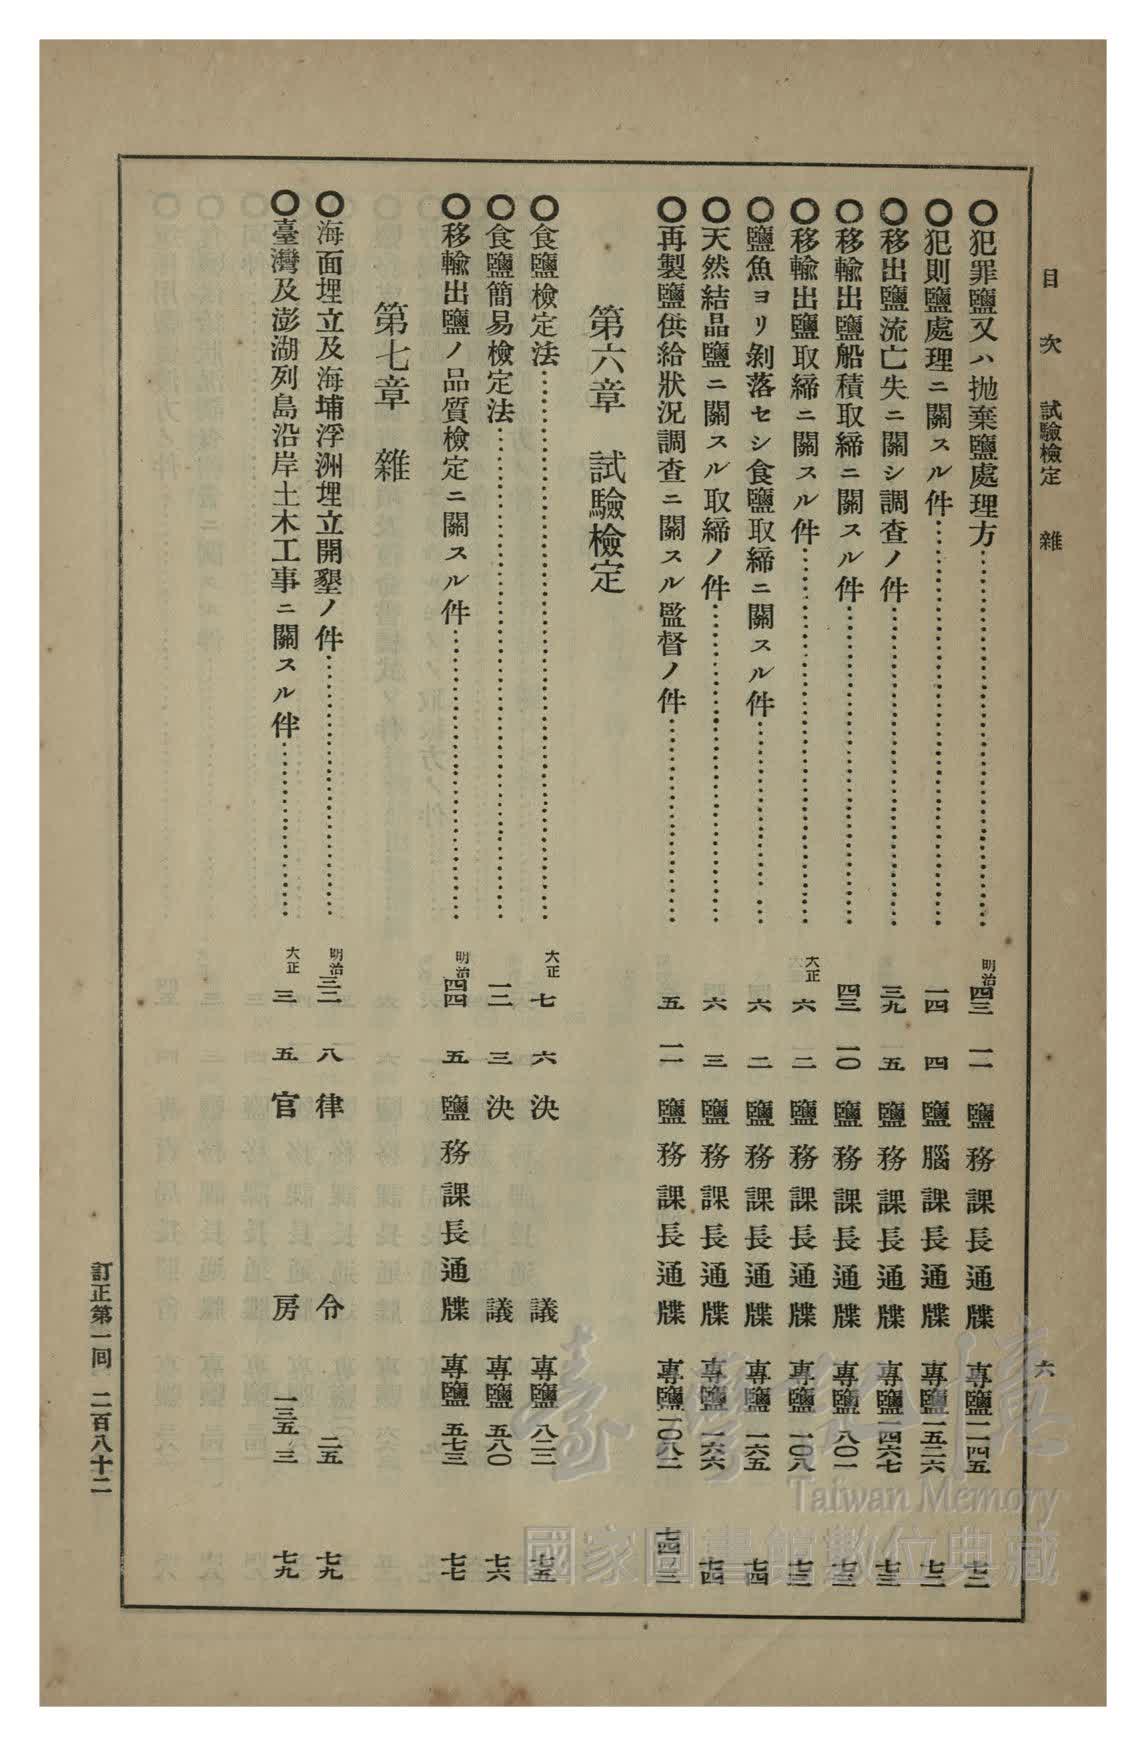 目次 試驗檢定 雜
六
〇犯罪鹽又ハ抛棄鹽處理方…………明治四三 一一 鹽務課長通牒 專鹽一一四五 七二
〇犯則鹽處理ニ關スル件…………一四 四 鹽腦課長通牒 專鹽一五二六 七二
〇移出鹽流亡失ニ關シ調査ノ件…………三九 五 鹽務課長通牒 專鹽一四六七 七三
〇移輸出鹽船積取締ニ關スル件…………四三 一〇 鹽務課長通牒 專鹽八〇一 七三
〇移輸出鹽取締ニ關スル件…………大正六 二 鹽務課長通牒 專鹽一〇八 七三
〇鹽魚ヨリ剝落セシ食鹽取締ニ關スル件…………六 二 鹽務課長通牒 專鹽一六五 七四
〇天然結晶鹽ニ關スル取締ノ件…………六 三 鹽務課長通牒 專鹽一六六 七四
〇再製鹽供給狀況調査ニ關スル監督ノ件…………五 一一 鹽務課長通牒 專鹽一〇八二 七四ノ三
第六章 試驗檢定
〇食鹽檢定法…………大正七 六 決議 專鹽八二二 七五
〇食鹽簡易檢定法…………一二 三 決議 專鹽五八〇 七六
〇移輸出鹽ノ品質檢定ニ關スル件…………明治四四 五 鹽務課長通牒 專鹽五七三 七七
第七章 雜
〇海面埋立及海埔浮洲埋立開墾ノ件…………明治三二 八 律令 二五 七九
〇臺灣及澎湖列島沿岸土木工事ニ關スル件…………大正三 五 官房 一三五三 七九
訂正第一回 二百八十二
臺灣記憶
Taiwan Memory
國家圖書館數位典藏